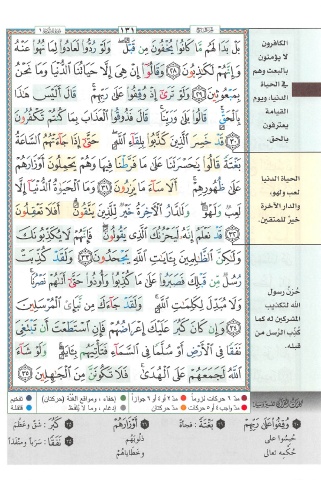 ١٣١
بَلْ بَدَا لَهُم مَّا كَانُوا۟ يُخْفُونَ مِن قَبْلُ ۖ وَلَوْ رُدُّوا۟ لَعَادُوا۟ لِمَا نُهُوا۟ عَنْهُ
وَإِنَّهُمْ لَكَـٰذِبُونَ ٢٨ وَقَالُوٓا۟ إِنْ هِىَ إِلَّا حَيَاتُنَا ٱلدُّنْيَا وَمَا نَحْنُ
بِمَبْعُوثِينَ ٢٩ وَلَوْ تَرَىٰٓ إِذْ وُقِفُوا۟ عَلَىٰ رَبِّهِمْ ۚ قَالَ أَلَيْسَ هَـٰذَا
بِٱلْحَقِّ ۚ قَالُوا۟ بَلَىٰ وَرَبِّنَا ۚ قَالَ فَذُوقُوا۟ ٱلْعَذَابَ بِمَا كُنتُمْ تَكْفُرُونَ
٣٠ قَدْ خَسِرَ ٱلَّذِينَ كَذَّبُوا۟ بِلِقَآءِ ٱللَّهِ ۖ حَتَّىٰٓ إِذَا جَآءَتْهُمُ ٱلسَّاعَةُ
بَغْتَةً قَالُوا۟ يَـٰحَسْرَتَنَا عَلَىٰ مَا فَرَّطْنَا فِيهَا وَهُمْ يَحْمِلُونَ أَوْزَارَهُمْ
عَلَىٰ ظُهُورِهِمْ ۚ أَلَا سَآءَ مَا يَزِرُونَ ٣١ وَمَا ٱلْحَيَوٰةُ ٱلدُّنْيَآ إِلَّا
لَعِبٌ وَلَهْوٌ ۖ وَلَلدَّارُ ٱلْـَٔاخِرَةُ خَيْرٌ لِّلَّذِينَ يَتَّقُونَ ۗ أَفَلَا تَعْقِلُونَ
٣٢ قَدْ نَعْلَمُ إِنَّهُۥ لَيَحْزُنُكَ ٱلَّذِى يَقُولُونَ ۖ فَإِنَّهُمْ لَا يُكَذِّبُونَكَ
وَلَـٰكِنَّ ٱلظَّـٰلِمِينَ بِـَٔايَـٰتِ ٱللَّهِ يَجْحَدُونَ ٣٣ وَلَقَدْ كُذِّبَتْ
رُسُلٌ مِّن قَبْلِكَ فَصَبَرُوا۟ عَلَىٰ مَا كُذِّبُوا۟ وَأُوذُوا۟ حَتَّىٰٓ أَتَىٰهُمْ نَصْرُنَا ۚ
وَلَا مُبَدِّلَ لِكَلِمَـٰتِ ٱللَّهِ ۚ وَلَقَدْ جَآءَكَ مِن نَّبَإِى۟ ٱلْمُرْسَلِينَ
٣٤ وَإِن كَانَ كَبُرَ عَلَيْكَ إِعْرَاضُهُمْ فَإِنِ ٱسْتَطَعْتَ أَن تَبْتَغِىَ
نَفَقًا فِى ٱلْأَرْضِ أَوْ سُلَّمًا فِى ٱلسَّمَآءِ فَتَأْتِيَهُم بِـَٔايَةٍ ۚ وَلَوْ شَآءَ
ٱللَّهُ لَجَمَعَهُمْ عَلَى ٱلْهُدَىٰ ۚ فَلَا تَكُونَنَّ مِنَ ٱلْجَـٰهِلِينَ ٣٥
الكافرون
لا يؤمنون
بالبعث وهم
في الحياة
الدنيا، ويوم
القيامة
يعترفون
بالحق.
الحياة الدنيا
لعب ولهو،
والدار الآخرة
خير للمتقين.
حُزنُ رسول
الله لتكذيب
المشركين له كما
كُذِّب الرسل من
قبله.
مدّ ٦ حركات لزوماً
مدّ ٢ أو ٤ أو ٦ جوازاً
إخفاء، ومواقع الغنّة (حركتان)
تفخيم
مدّ واجب ٤ أو ٥ حركات
مدّ حركتان
إدغام، وما لا يُلفظ
قلقلة
وُقِفُوا۟ عَلَىٰ رَبِّهِمْ :
حُبِسُوا على
حُكْمِه تعالى
بَغْتَةً : فجأةً
أَوْزَارَهُمْ :
ذنوبَهُم
وخطاياهُم
كَبُرَ : شقَّ وعَظُمَ
نَفَقًا : سَرَباً ومنفذاً